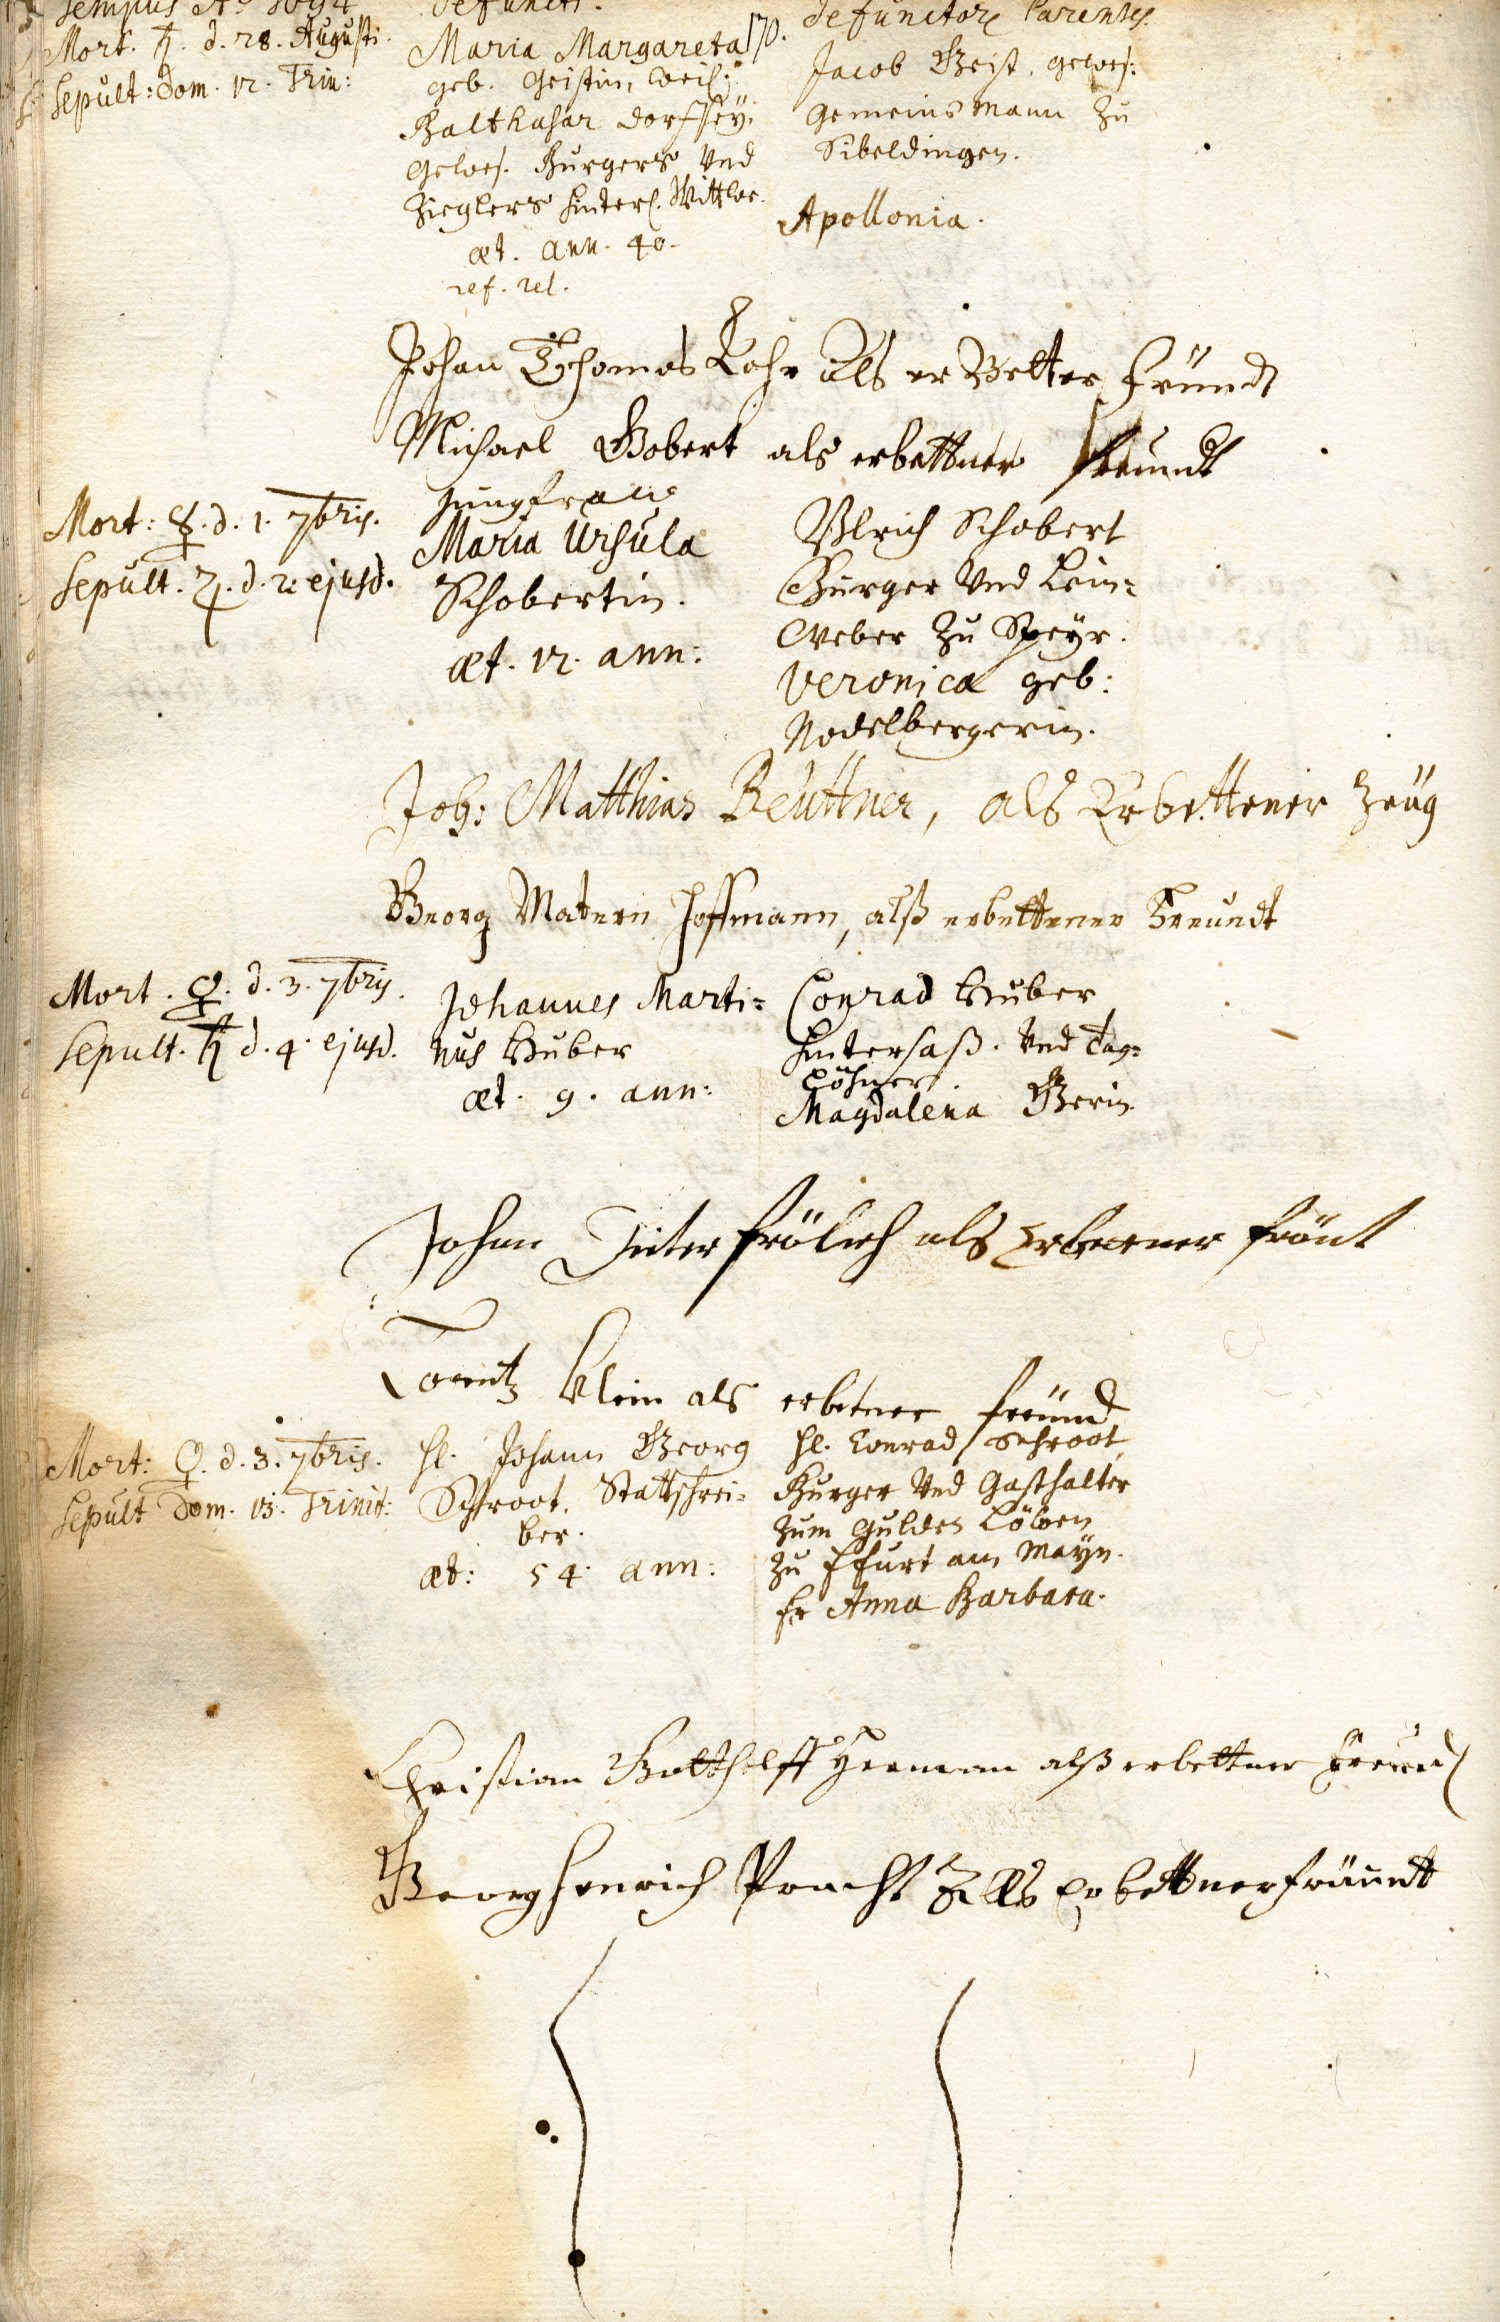 Tempus Aō 1694
Defuncti.
defunctorũ Parentes.
170.
Mort. ♄. d. 28. Augusti.
Sepult: Dom. 12. Trin:
Maria Margareta
geb. Geistin, weil.
Balthasar Dorfsey.
gewes. Burgers Und
Zieglers hinterl. Wittwe.
æt. ann. 40.
ref. rel.
Jacob Geist, gewes:
Gemeinsmann zu
Sibeldingen.
Apollonia.
Johan Thomas Lohr Als er Better fründt
Michael Gobert als erbettner freundt
Mort: ☿. d. 1. 7bris.
Sepult. ♃. d. 2. ejusd.
Jungfrau
Maria Ursula
Schobertin.
æt. 12. ann:
Ulrich Schobert
Burger Und Lein-
weber zu Speÿr.
Veronica geb:
Nodelbergerin.
Joh: Matthias Beüttner, als Erbettener Zeüg
Georg Matern Hoffmann, alß erbettener Freundt
Mort. ♀. d. 3. 7bris.
Sepult. ♄ d. 4. ejusd.
Johannes Marti-
nus Huber
æt. 9. ann:
Conrad Huber
Hintersaß. Und Tag-
Löhner.
Magdalena Gerin
Johan Dieter frölich als Erbetener frönt
Lorentz Klein als erbetner freünd
Mort: ♀. d. 3. 7bris.
Sepult Dom. 13. Trinit:
Hl. Johann Georg
Schroot. Stattschrei-
ber.
æt: 54. ann:
Hl. Conrad Schroot,
Burger Und Gasthalter
zum Gulden Löwen
zu Ffurt am Mayn.
Fr Anna Barbara.
Christian Gotthelff Herman alß erbettner Freund
Georg Henrich Pracht Alls Erbettner fräundt